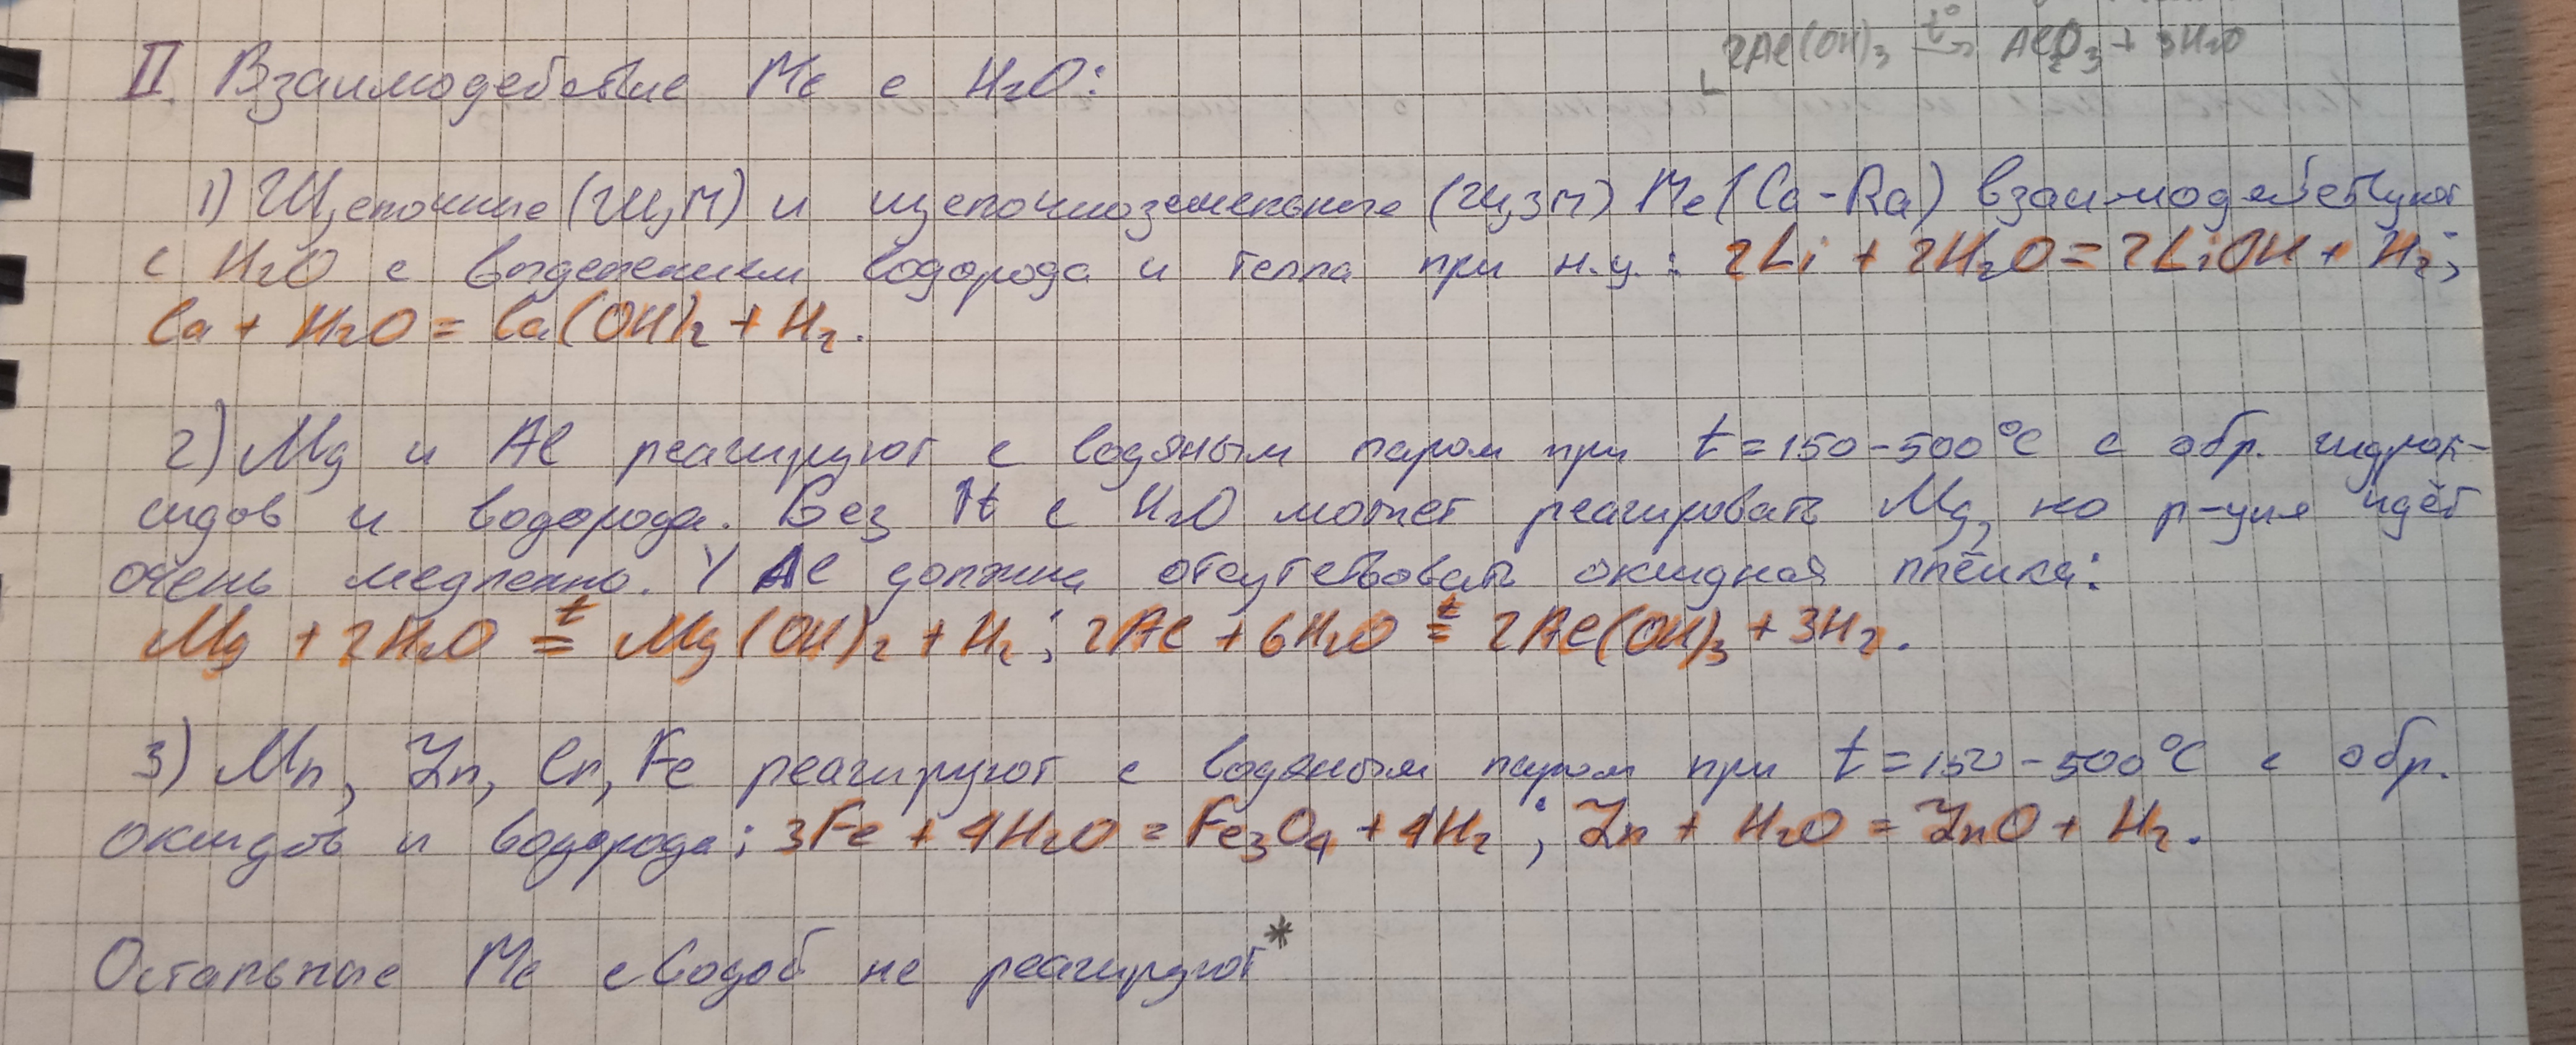 2Al(OH)₃ t°→ Al₂O₃ + 3H₂O
II. Взаимодействие Ме с H₂O:
1) Щелочные (ЩМ) и щелочноземельные (ЩЗМ) Ме (Ca-Ra) взаимодействуют
с H₂O с выделением водорода и тепла при н.у.: 2Li + 2H₂O = 2LiOH + H₂;
Ca + H₂O = Ca(OH)₂ + H₂.
2) Mg и Al реагируют с водяным паром при t=150-500°C с обр. гидрок-
сидов и водорода. Без ↑t с H₂O может реагировать Mg, но р-ция идёт
очень медленно. У Al должна отсутствовать оксидная плёнка:
Mg + 2H₂O =t Mg(OH)₂ + H₂; 2Al + 6H₂O =t 2Al(OH)₃ + 3H₂.
3) Mn, Zn, Cr, Fe реагируют с водяным паром при t=150-500°C с обр.
оксидов и водорода: 3Fe + 4H₂O = Fe₃O₄ + 4H₂; Zn + H₂O = ZnO + H₂.
Остальные Ме с водой не реагируют*